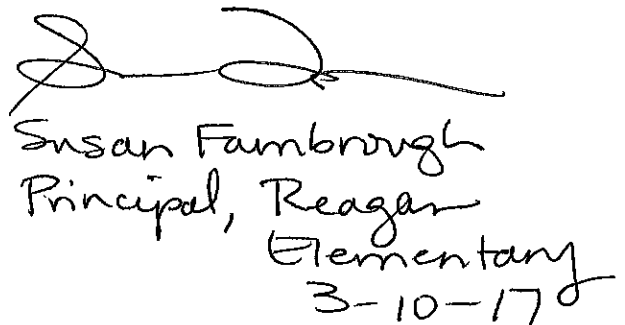 Susan Fambrough
Principal, Reagan
Elementary
3-10-17